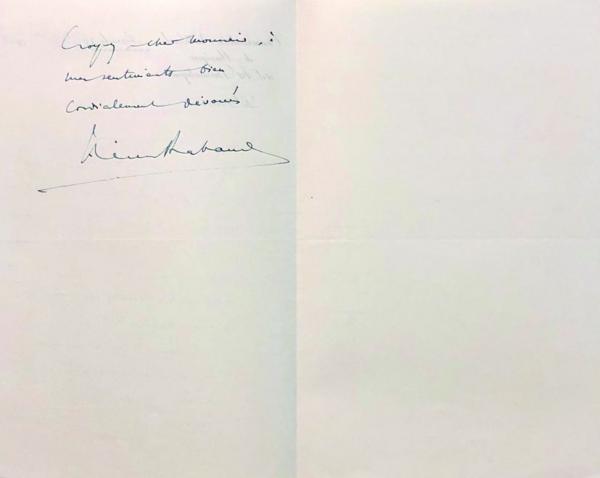 Croyez cher monsieur, à
mes sentiments bien
cordialement dévoués
Henri Rabaud